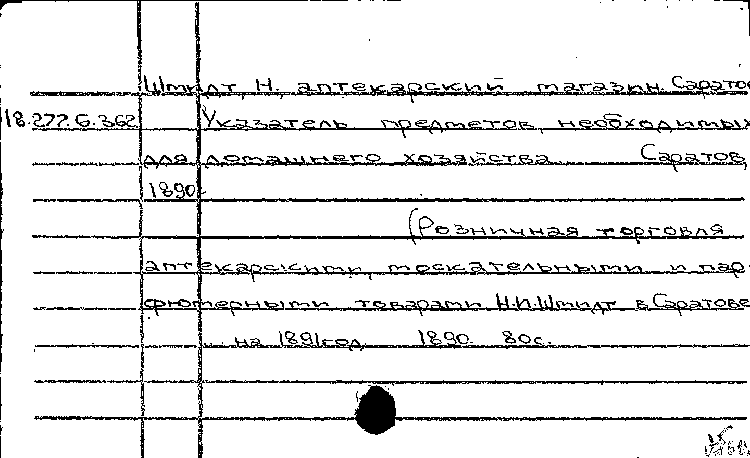 Шмидт, Н, аптекарский магазин. Саратов
18.277.6.362 Указатель предметов, необходимых
для домашнего хозяйства Саратов,
1890
(Розничная торговля
аптекарскими, москательными и пар-
фюмерными товарами Н.И.Шмидт в Саратове
на 1891 год 1890. 80с.